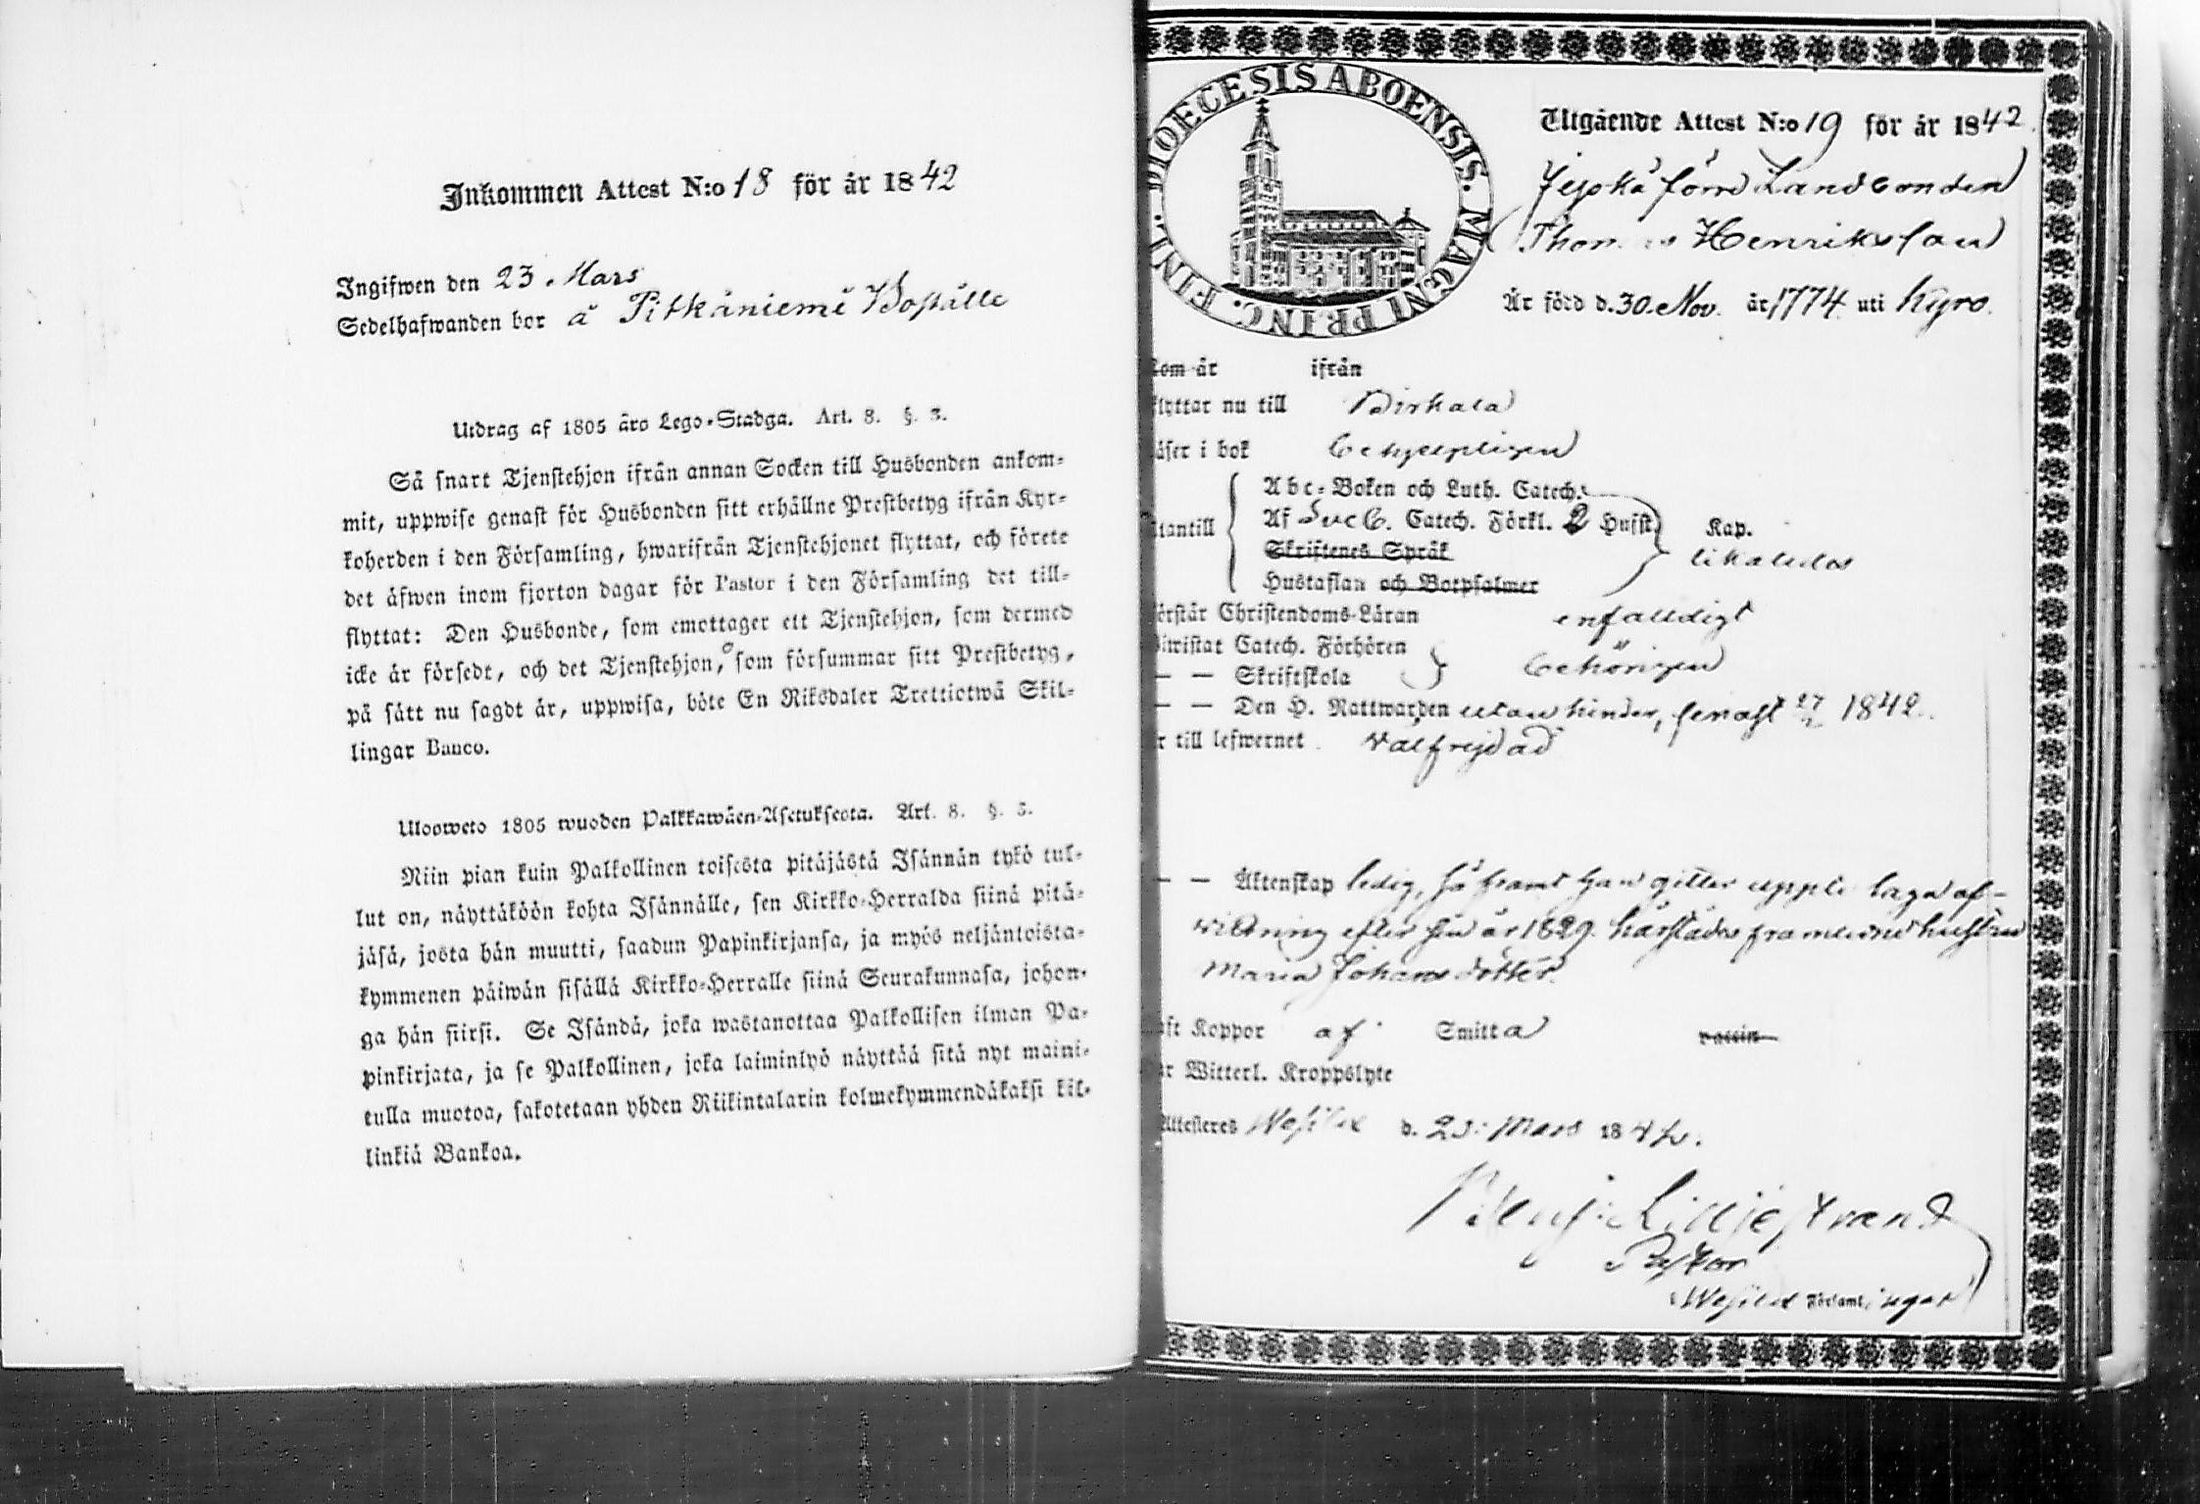 Inkommen Attest N:o 18 för år 1842
Ingifwen den 23. Mars
Sedelhafwanden bor å Pitkäniemi Boställe
Utdrag af 1805 års Lego-Stadga. Art. 8. §. 3.
Så snart Tjenstehjon ifrån annan Socken till Husbonden ankom-
mit, uppwise genast för Husbonden sitt erhållne Prestbetyg ifrån Kyr-
koherden i den Församling, hwarifrån Tjenstehjonet flyttat, och förete
det äfwen inom fjorton dagar för Pastor i den Församling det till-
flyttat: Den Husbonde, som emottager ett Tjenstehjon, som dermed
icke är försedt, och det Tjenstehjon, som försummar sitt Prestbetyg,
på sätt nu sagdt är, uppwisa, böte En Riksdaler Trettiotwå Skil-
lingar Banco.
Uloosweto 1805 wuoden Palkkawäen-Asetuksesta. Art. 8. §. 3.
Niin pian kuin Palkollinen toisesta pitäjästä Isännän tykö tul-
lut on, näyttäköön kohta Isännälle, sen Kirkko-Herralda siinä pitä-
jäsä, josta hän muutti, saadun Papinkirjansa, ja myös neljäntoista-
kymmenen päiwän sisällä Kirkko-Herralle siinä Seurakunnasa, johon-
ga hän siirsi. Se Isändä, joka wastanottaa Palkollisen ilman Pa-
pinkirjata, ja se Palkollinen, joka laiminlyö näyttää sitä nyt maini-
tulla muotoa, sakotetaan yhden Riikintalarin kolmekymmendäkaksi kil-
linkiä Bankoa.
DIOECESIS ABOENSIS. MAGNI PRINC. FINL.
Utgående Attest N:o 19 för år 1842.
förre Landbonden
Thomas Henriksson
Är född d. 30. Nov. år 1774 uti Kyro.
Kom år ifrån
flyttar nu till Birkala
läser i bok behjelpligen
utantill
Abc-Boken och Luth. Catech.
Af Sveb. Catech. Förkl. 2 Hufst. Kap.
Skriftenes Språk likaledes
Hustaflan och Botpsalmer
förstår Christendoms-Läran enfaldigt
Biwistat Catech. Förhören
— — Skriftskola behörigen
— — Den H. Nattwarden utan hinder, senast 27/2 1842.
Är till lefwernet välfrejdad
— — Äktenskap ledig, så framt han gitter uppte laga af-
wittring efter sin år 1829 härstädes framledne hustru
Maria Johansdotter.
haft Koppor af Smitta vaccin
har Witterl. Kroppslyte
Attesteres Wesilax d. 23: Mars 1842.
Benj: Lilljestrand
Pastor
Wesilax Församlingar